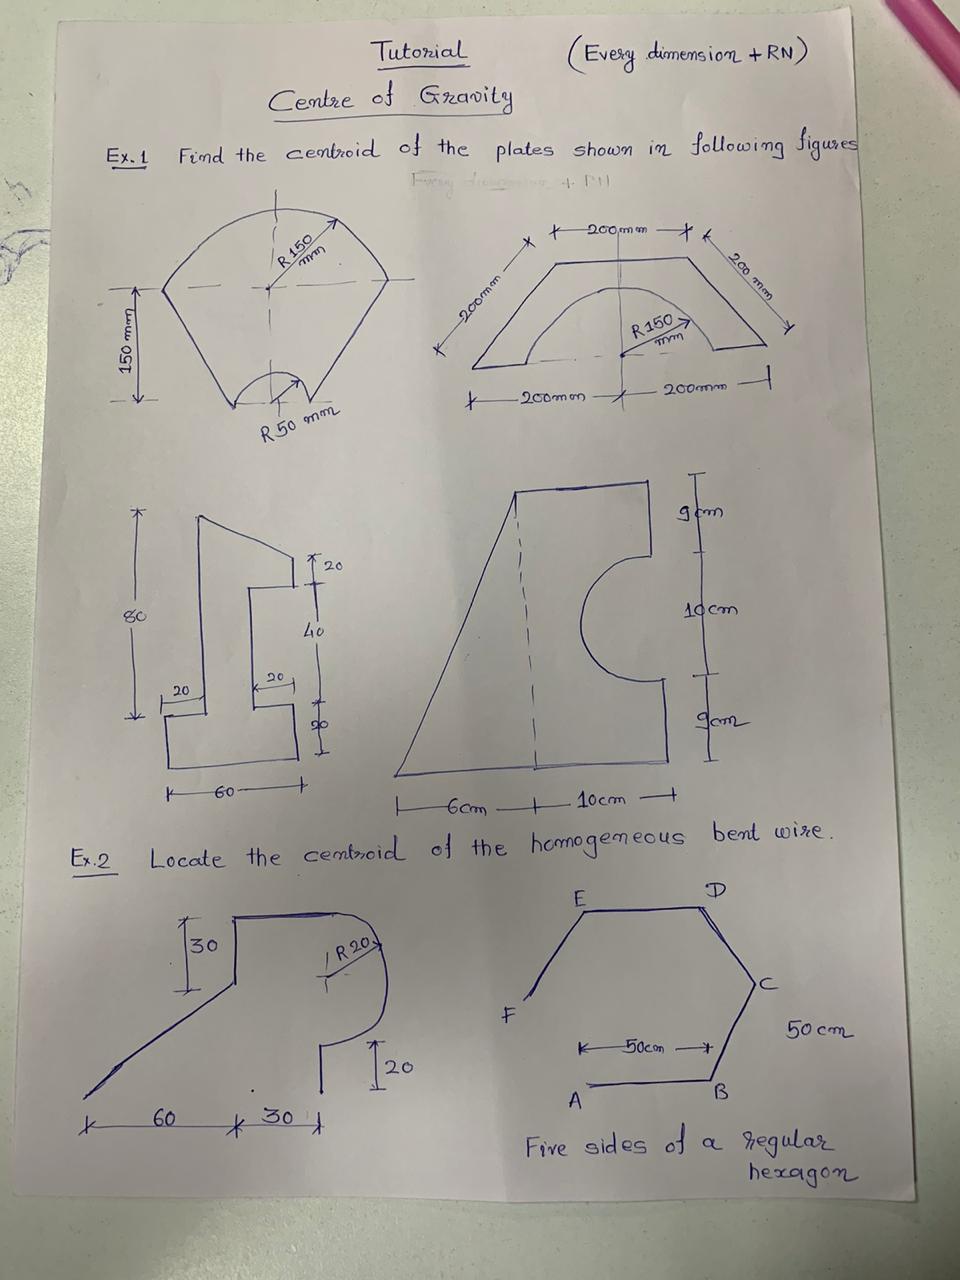 Tutorial (Every dimension + RN)
Centre of Gravity
Ex.1 Find the centroid of the plates shown in following figures
Every dimension + RN
R150 mm
150 mm
R50 mm
200mm
200mm
200 mm
R150 mm
200mm
200mm
80
20
20
20
40
20
60
9cm
10cm
9cm
6cm
10cm
Ex.2 Locate the centroid of the homogeneous bent wire.
30
R20
20
60
30
E
D
F
C
50cm
50cm
A
B
Five sides of a regular
hexagon